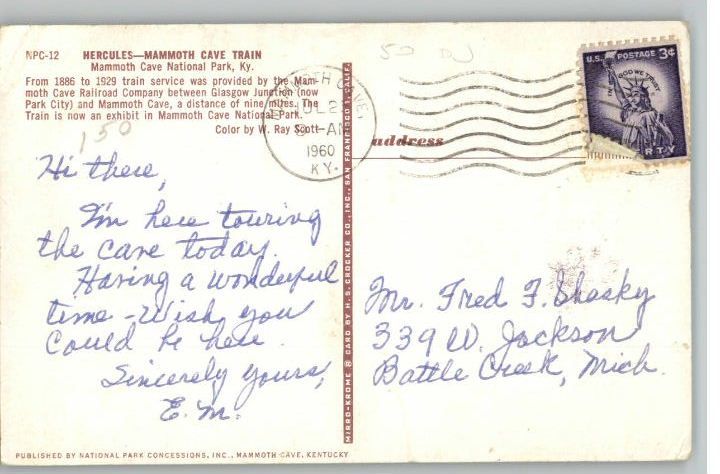 NPC-12 HERCULES—MAMMOTH CAVE TRAIN
Mammoth Cave National Park, Ky.
From 1886 to 1929 train service was provided by the Mam-
moth Cave Railroad Company between Glasgow Junction (now
Park City) and Mammoth Cave, a distance of nine miles. The
Train is now an exhibit in Mammoth Cave National Park.
Color by W. Ray Scott
150
Hi there,
I'm here touring
the cave today.
Having a wonderful
time - Wish you
could be here.
Sincerely yours,
E.M.
PUBLISHED BY NATIONAL PARK CONCESSIONS, INC., MAMMOTH CAVE, KENTUCKY
MIRRO-KROME ® CARD BY H. S. CROCKER CO., INC., SAN FRANCISCO 1, CALIF.
50
CAVE,
AM
1960
KY.
U.S. POSTAGE 3¢
IN GOD WE TRUST
RTY
address
Mr. Fred F. Shasky
339 W. Jackson
Battle Creek, Mich.